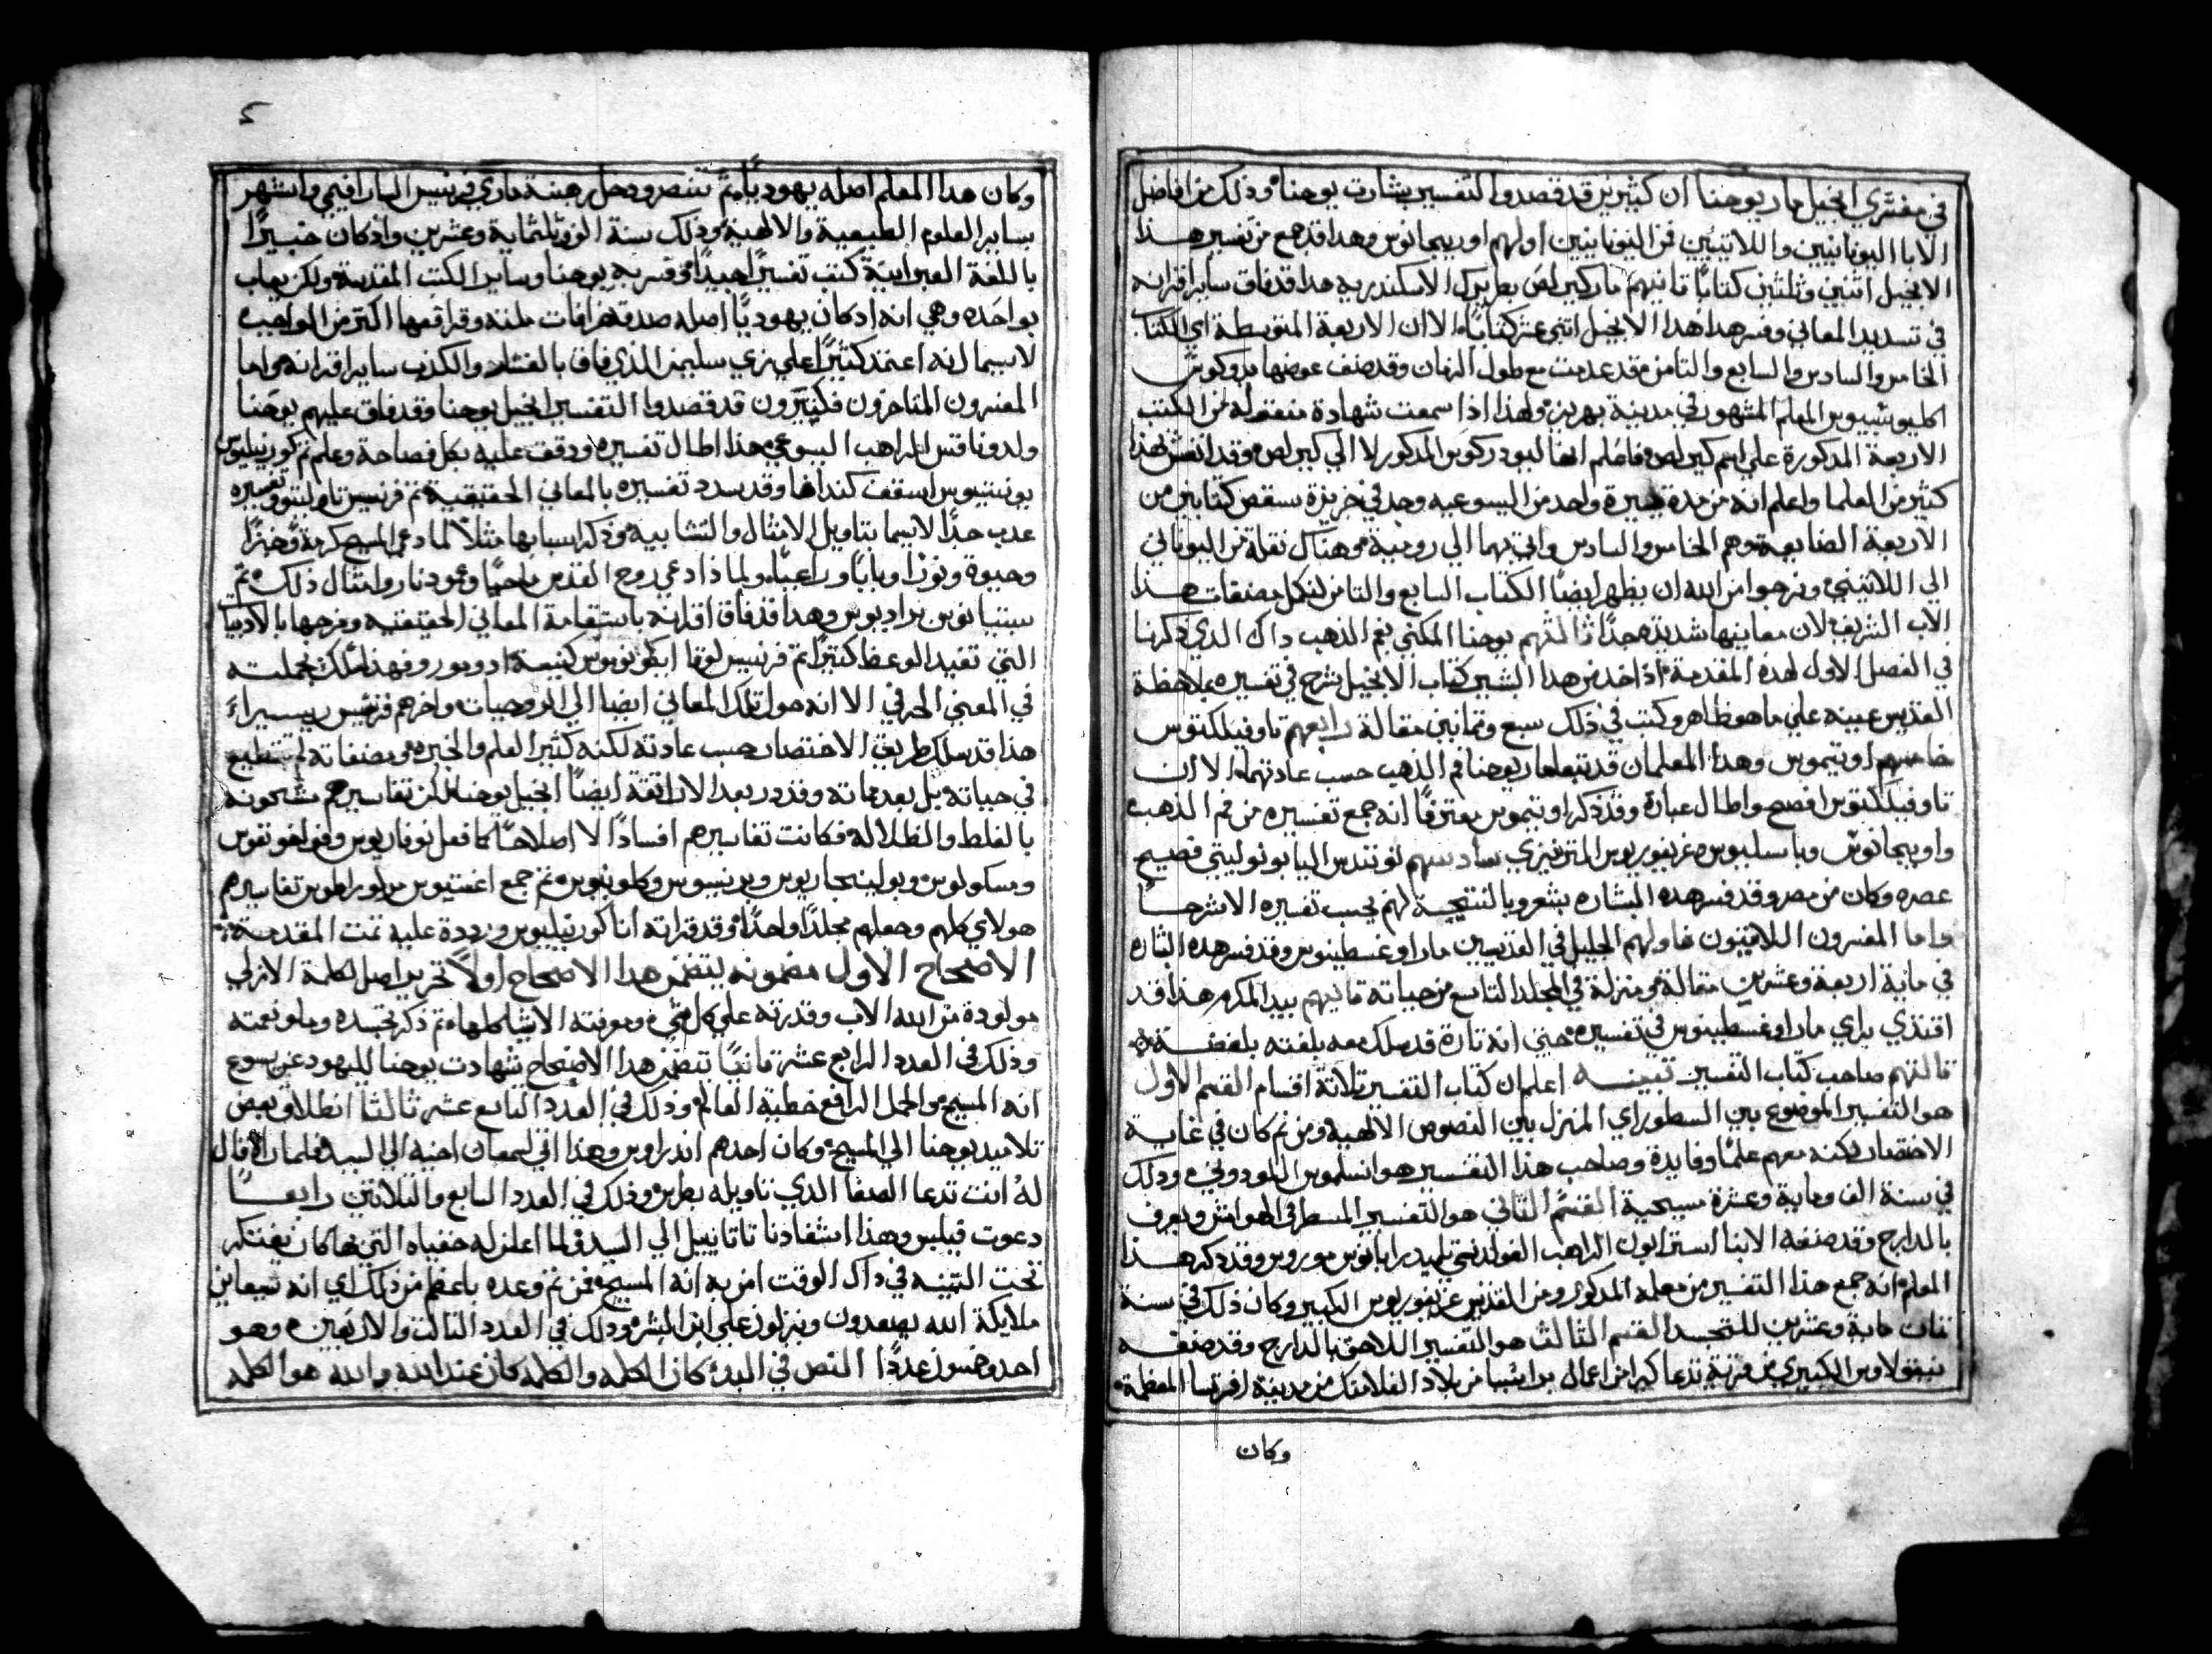 في مفسري انجيل مار يوحنا ان كثيرين قد قصدوا التفسير بشارت يوحنا وذلك من افاضل
الابا اليونانيين واللاتينيين فمن اليونانيين اولهم اوريجانوس وهدا قد جمع من تفسير هدا
الانجيل اثنين وثلثين كتابًا ثانيهم مار كيرلص بطريرك الاسكندريه هدا قد فاق ساير اقرانه
في تسديد المعاني وفسر هدا الانجيل اثني عشر كتابًا الا ان الاربعة المتوسطة اي الكتاب
الخامس والسادس والسابع والثامن قد عدمت مع طول الزمان وقد صنف عوضها يودوكوس
اكليوشيوس المعلم المشهور في مدينة بهريز ولهذا اذا سمعت شهادة منقوله من الكتب
الاربعة المدكورة علي اسم كيرلص فاعلم انها ليودركوس المدكور لا الي كيرلص وقد انغش بهذا
كثير من العلما واعلم انه من مدة يسيرة واحد من اليسوعيه وجد في خزينة بسقص كتابين من
الاربعة الضايعة وهم الخامس والسادس واتي بهما الي رومية وهناك نقله من اليوناني
الي اللاتيني ونرجوا من الله ان يظهر ايضًا الكتاب السابع والثامن لتكمل مصنفات هدا
الاب الشريف لان معانيها شديده جدًا ثالثهم يوحنا المكني بفم الذهب داك الدي دكرنا
في الفصل الاول لهده المقدمة اذ اخد من هدا البشير كتاب الانجيل يشرح في تفسيره بملاحظة
القديس عينه علي ما هو ظاهر وكتب في ذلك سبع وثمانين مقالة رابعهم تاوفيلكتوس
خامسهم اوتيموس وهدا المعلمان قد تبعا مار يوحنا فم الذهب حسب عادتهما الا ان
تاوفيلكتوس افصح واطال عبارة وقد ذكر اوتيموس معترفًا انه جمع تفسيره من فم الذهب
واوريجانوس وباسليوس وغريغوريوس النزينزي سادسهم نونندس البانونوليتي فصيح
عصره وكان من مصر وقد فسر هده البشاره بشعر وبالنتيجة لهم يحسب تفسيره الا شرحًا
واما المفسرون اللاتينيون فاولهم الجليل في القديسين مار اوغسطينوس وقد فسر هده البشاره
في ماية اربعة وعشرين مقالة ومنزلة في المجلد التاسع من حياته ثانيهم بيدا المكرم هدا قد
اقتدي براي مار اوغسطينوس في تفسيره حتي انه تارة قد سلك معه بلغته بلفضة
ثالثهم صاحب كتاب التفسير تبينه اعلم ان كتاب التفسير ثلاثة اقسام القسم الاول
هو التفسير الموضوع بين السطور اي المنزل بين النصوص الالهيه ومن ثم كان في غاية
الاختصار لكنه مفهم علمًا وفايدة وصاحب هذا التفسير هو انسلموس اللودوني ودلك
في سنة الف وماية وعشرة مسيحية القسم الثاني هو التفسير المسطر في الهوامش ويعرف
بالدارج وقد صنفه الابنا استرابون الراهب الفولدني تلميد رابانوس موروس وقد دكر هدا
المعلم انه جمع هذا التفسير من معلمه المدكور ومن القديس غريغوريوس الكبير وكان ذلك في سنة
ثمان ماية وعشرين للتجسد القسم الثالث هو التفسير اللاحق بالدارج وقد صنفه
نيقولاوس الكبيري من قرية تدعا كيرا من اعمال برانشيا من بلاد الفلامنك من مدينة افرنسا المعظمة
وكان
وكان هدا المعلم اصله يهوديًا ثم تنصر ودخل رهبنة ماري فرنسيس السارافيمي واشتهر
بساير العلوم الطبيعية والالهية وذلك سنة الف وثلثماية وعشرين واذ كان خبيرًا
باللغة العبرانية كتب تفسيرًا جيدًا في قسريه يوحنا وساير الكتب المقدسة ولكن يعاب
بواحده وهي انه اد كان يهوديًا اصله صدق خرافات ملته وقراقعها اكثر من الواجب
لاسيما انه اعتمد كثيرًا علي زي سليمن الذي فاق بالفشار والكذب ساير اقرانه واما
المفسرون المتاخرون فكثيرون قد قصدوا التفسير انجيل يوحنا وقد فاق عليهم يوحنا
ولدوناتس الراهب اليسوعي هذا اطال تفسيره ووقفت عليه بكل فصاحة وعلم ثم كورنيليوس
يونستيوس اسقف كنداها وقد سدد تفسيره بالمعاني الحقيقية ثم فرنسيس تاوليتو وتفسيره
عدب جدًا لاسيما بتاويل الامثال والتشابيه وذكر اسبابها مثلًا لما دعي المسيح كرمة وخبزًا
وحيوة ونورًا وبابًا وراعيًا ولماذا دعي روح القدس ريحًا وعمود نار وامثال ذلك ثم
سبتيانوس براديوس وهدا قد فاق اقرانه باستقامة المعاني الحقيقيه ومزجها بالادبيات
التي تفيد الوعظ كثيرًا ثم فرنسيس لوقا ايقونوموس كنيسة ادومورو فهدا ملك بجملته
في المعني الحرفي الا انه حول تلك المعاني ايضا الي الروحيات واخرهم فرنسيس ريبيرا
هذا قد سلك طريق الاختصار حسب عادته لكنه كثير العلم والخبره ومصنفاته لم تنطبع
في حياته بل بعد مماته وقد ورد بعد الاراتقة ايضًا انجيل يوحنا لكن تفاسيرهم مشحونه
بالغلط والظلاله فكانت تفاسيرهم افسادًا لا اصلاحًا كما فعل نوفاريوس وفولفونفوس
ومسكولوس وبولينجاريوس وبرنسيوس وكلوينيوس ثم جمع اغستيوس مرلوراطوس تفاسيرهم
هولاي كلهم وجعلهم مجلدًا واحدًا وقد قراته انا كورنيليوس ورددة عليه تمت المقدمة
الاصحاح الاول مضمونه يتضمن هدا الاصحاح اولًا تحرير اصل الكلمة الازلي
مولودة من الله الاب وقدرته علي كل شي ومعرفته الاشيا كلها ثم ذكر تجسده وملو نعمته
وذلك في العدد الرابع عشر ثانيًا تتضمن هدا الاصحاح شهادت يوحنا لليهود عن يسوع
انه المسيح هو الحمل الرافع خطية العالم وذلك في العدد التاسع عشر ثالثا انطلاق بعض
تلاميد يوحنا الي المسيح وكان احدهم اندراوس وهذا اتي لسمعان اخيه الي السيد فلما راه قال
لهُ انت تدعا الصفا الذي تاويله بطرس وذلك في العدد السابع والثلاثين رابعًا
دعوت فيلبس وهدا استفادنا ثاتانييل الي السيد ولما اعلن له خفياه التي بها كان يفتكر
تحت التينه في داك الوقت امن به انه المسيح فمن ثم وعده باعظم من ذلك اي انه سيعاين
ملايكة الله يصعدون وينزلون علي ابن البشر ودلك في العدد الثالث والاربعين وهو
احد وخمسون عددًا النص في البدء كان الكلمه والكلمه كان عند الله والله هو الكلمه